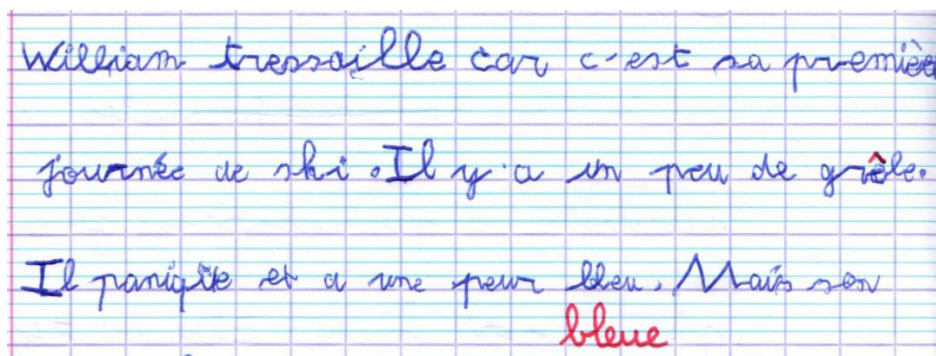 William tressaille car c'est sa première
journée de ski. Il y a un peu de grêle.
Il panique et a une peur bleu. Mais son
bleue